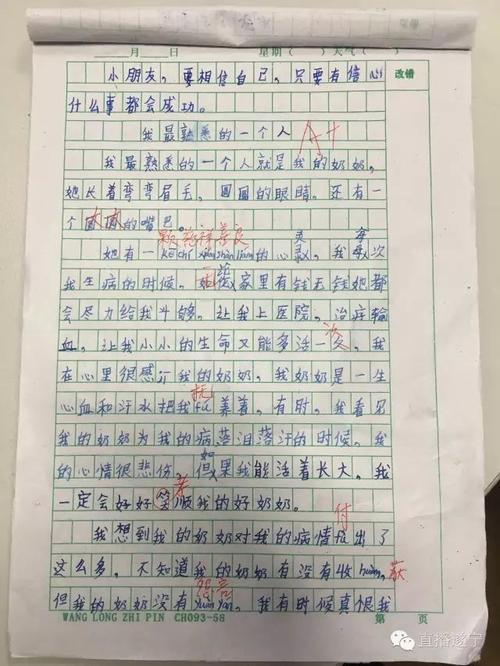 月 日 星期( ) 天气( )
改错
小朋友,要相信自己,只要有信心
什么事都会成功。
我最熟悉的一个人
A+
我最熟悉的一个人就是我的奶奶,
她长着弯弯眉毛,圆圆的眼睛。还有一
个圆圆的嘴巴。
颗慈祥善良 灵 每
她有一kē cí xiáng shàn liáng的心灵。我每次
我生病的时候。家里有钱无钱她都
会尽力给我斗够。让我上医院。治病输
血。让我小小的生命又能多活一次。我
在心里很感介我的奶奶。我奶奶是一生
抚
心血和汗水把我fǔ养着。有时。我看见
我的奶奶为我的病落泪落汗的时候。我
如
的心情很悲伤。但果我能活着长大。我
孝
一定会好好笑顺我的好奶奶。
付
我想到我的奶奶对我的病情付出了
这么多。不知道我的奶奶有没有收huò。获
怨言
但我的奶奶没有yuàn yán。我有时候真恨我
WANG LONG ZHI PIN CH093-58
第 页
直播遂宁